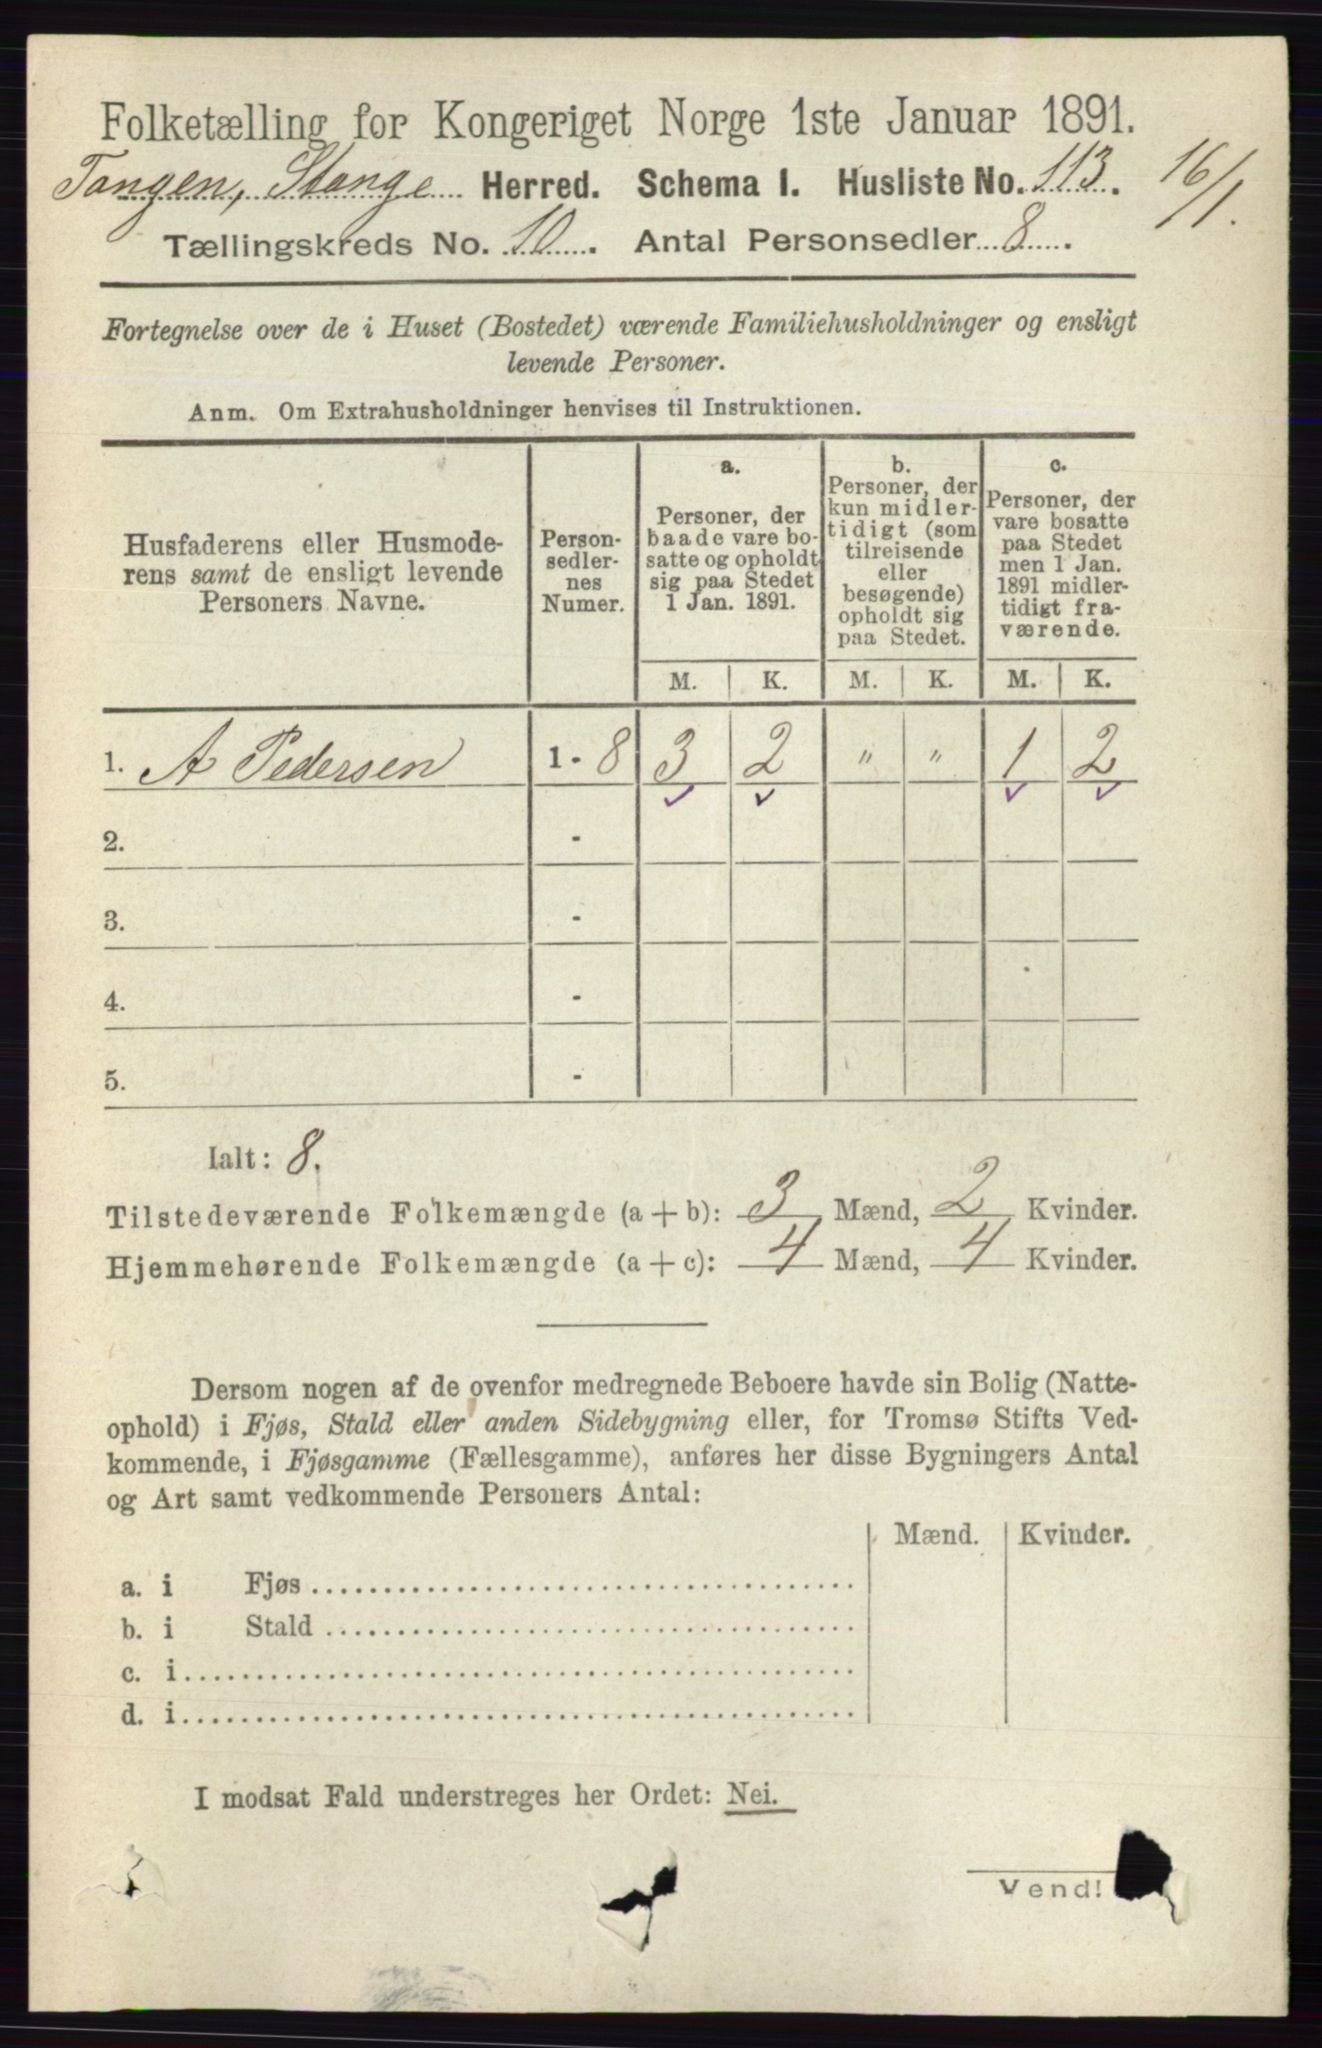 Folketælling for Kongeriget Norge 1ste Januar 1891.
Tangen, Stange Herred. Schema I. Husliste No. 113. 16/1.
Tællingskreds No. 10. Antal Personsedler 8.
Fortegnelse over de i Huset (Bostedet) værende Familiehusholdninger og ensligt
levende Personer.
Anm. Om Extrahusholdninger henvises til Instruktionen.
Husfaderens eller Husmode-
rens samt de ensligt levende
Personers Navne.
Person-
sedler-
nes
Numer.
a.
Personer, der
baade vare bo-
satte og opholdt
sig paa Stedet
1 Jan. 1891.
b.
Personer, der
kun midler-
tidigt (som
tilreisende
eller
besøgende)
opholdt sig
paa Stedet.
c.
Personer, der
vare bosatte
paa Stedet
men 1 Jan.
1891 midler-
tidigt fra-
værende.
M. K. M. K. M. K.
1. A Pedersen 1 - 8 3 2 " " 1 2
2. -
3. -
4. -
5. -
Ialt: 8.
Tilstedeværende Folkemængde (a + b): 3 Mænd, 2 Kvinder.
Hjemmehørende Folkemængde (a + c): 4 Mænd, 4 Kvinder.
Dersom nogen af de ovenfor medregnede Beboere havde sin Bolig (Natte-
ophold) i Fjøs, Stald eller anden Sidebygning eller, for Tromsø Stifts Ved-
kommende, i Fjøsgamme (Fællesgamme), anføres her disse Bygningers Antal
og Art samt vedkommende Personers Antal:
Mænd. Kvinder.
a. i Fjøs
b. i Stald
c. i
d. i
I modsat Fald understreges her Ordet: Nei.
Vend!